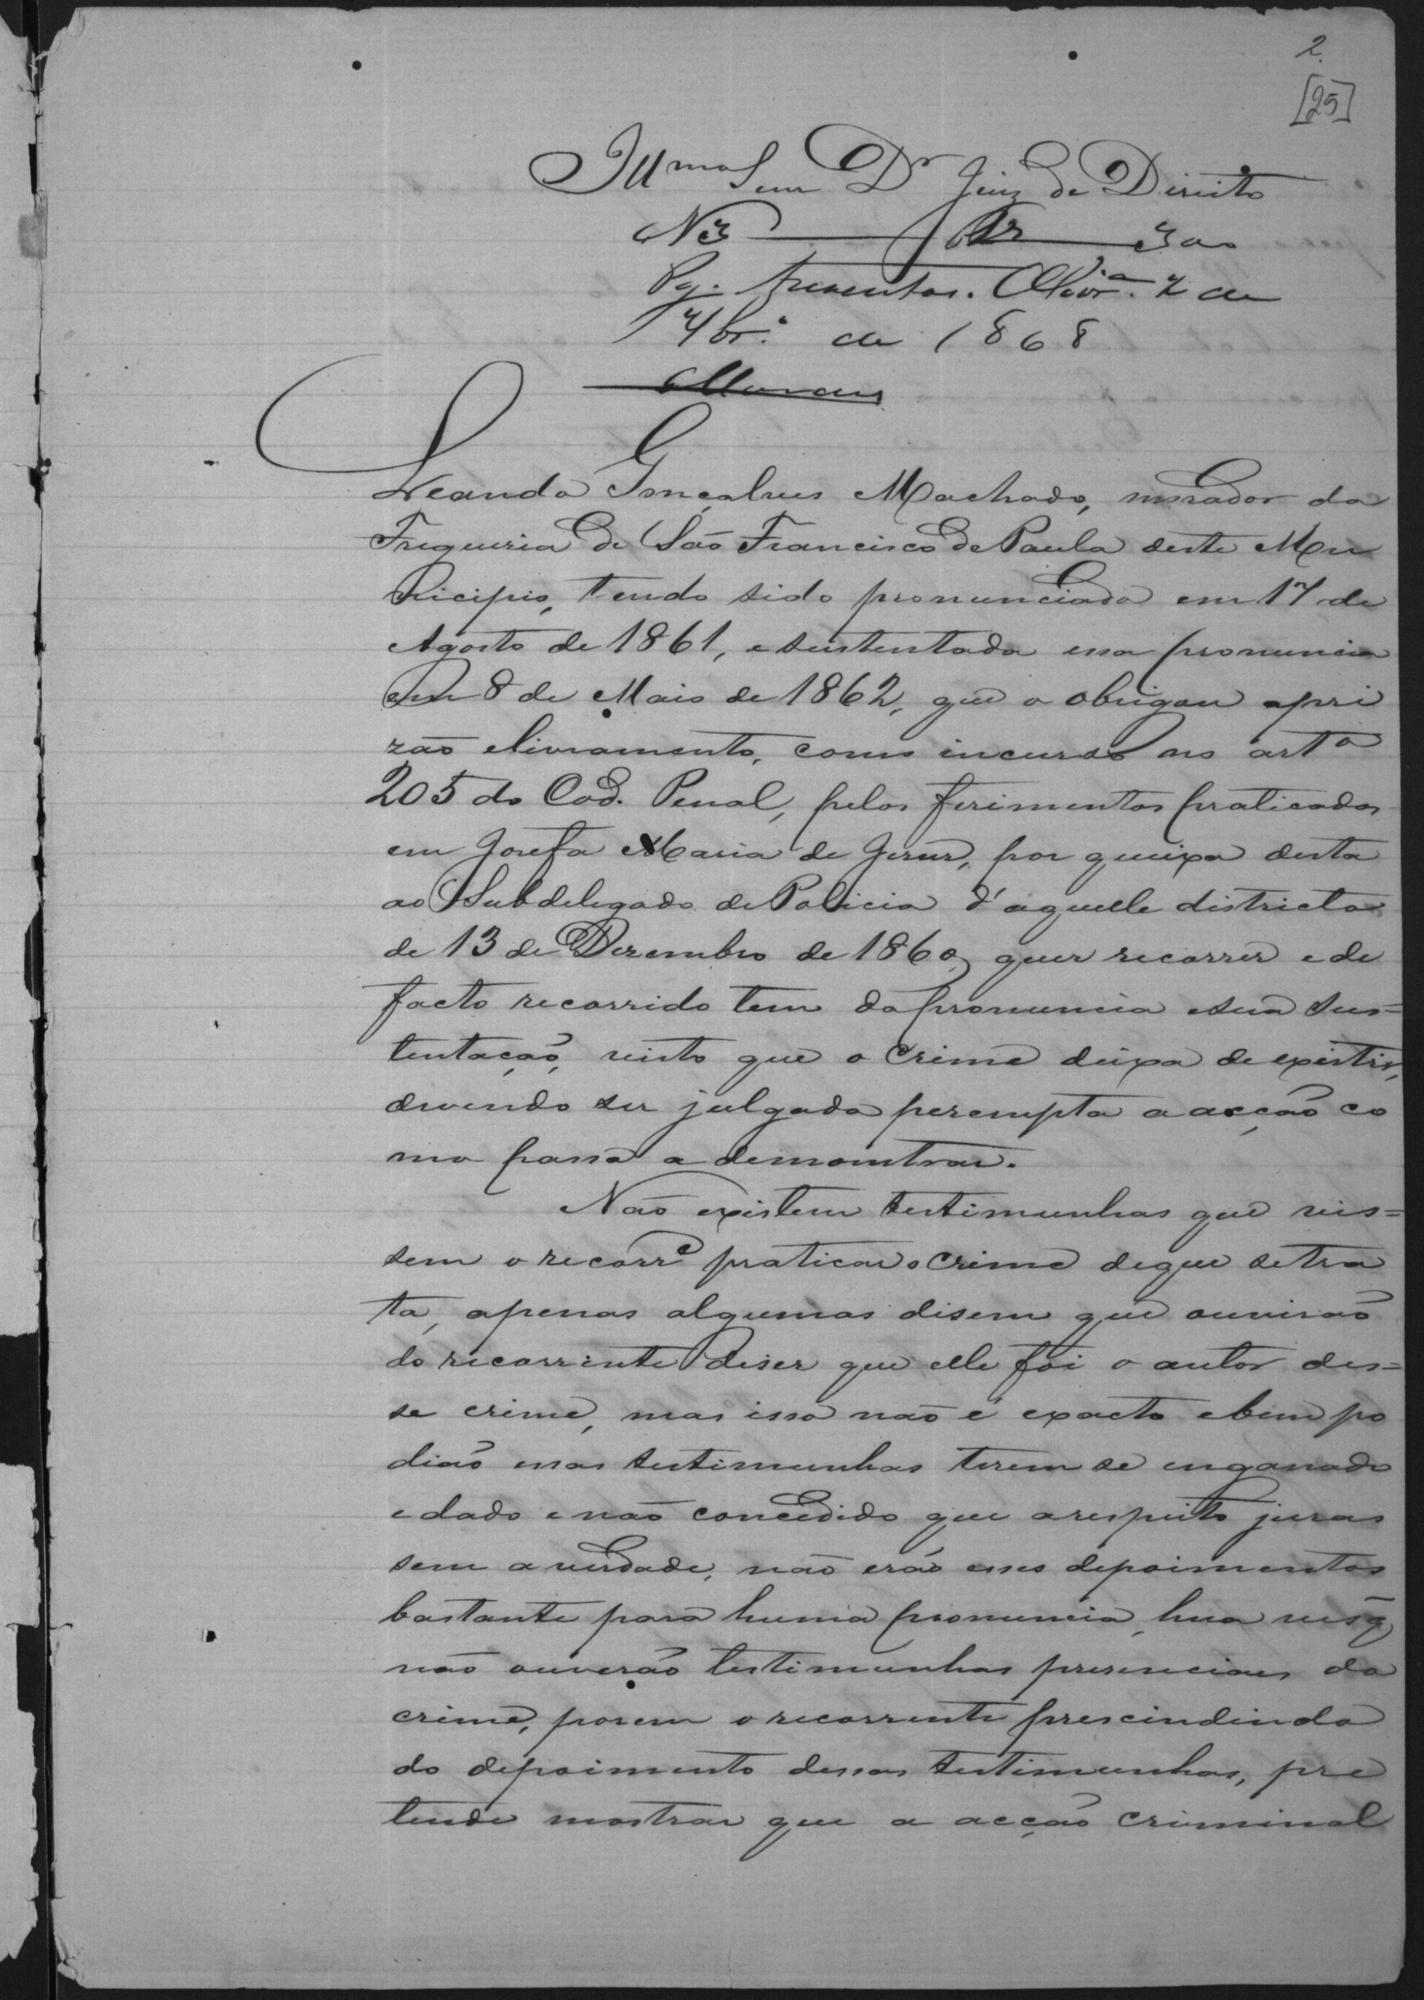 2
[25]
Illmo Senr Dr Juiz de Direito
N 3 300
Pg. trezentos. Olivra. 2 de
7br.o de 1868
Moraes
Leando Gonçalves Machado, morador da
Fregueria de São Francisco de Paula deste Mu
nicipio, tendo sido pronunciado em 17 de
Agosto de 1861, e sustentada essa pronuncia
em 8 de Maio de 1862, que o obrigou apri
zão elivramento, como incurso no arto
205 do Cod. Penal, pelos ferimentos praticados
em Josefa Maria de Jesus, por queixa desta
ao Subdelegado de Policia d'aquelle districto
de 13 de Dezembro de 1860, quer recorrer e de
facto recorrido tem da pronuncia e sua sus=
tentação, visto que o crime deixa de existir,
devendo ser julgada perempta a acção co
mo passa a demonstrar.
Não existem testimunhas que vis=
sem o recorre praticar o crime deque setra
ta, apenas algumas disem que ouvirão
do recorrente diser que elle foi o autor des=
se crime, mas isso não é exacto ebem po
dião essas testimunhas terem se enganado
e dado e não concedido que arespeito juras
sem a verdade, não erão esses depoimentos
bastante para huma pronuncia, hua vês q
não ouverão testimunhas presenciaes do
crime, porem o recorrente prescindindo
do depoimento dessas testimunhas, pre
tende mostrar que a acção criminal